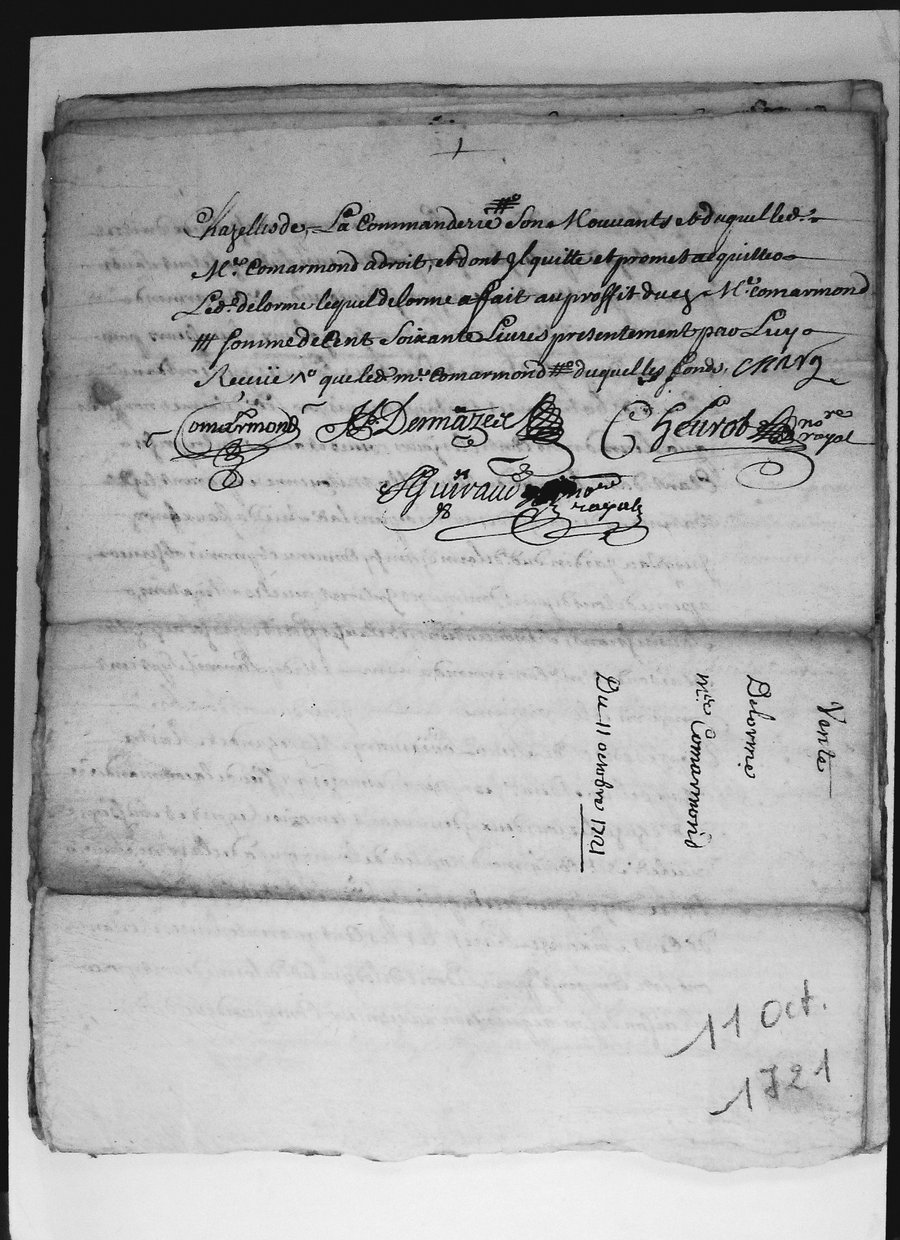 Chazelles de La Commanderie Son Mouvants et duquel led.
Mr. Comarmond a droit, et dont Il quitte et promet acquitter
Led. delorme lequel delorme a fait au proffit dud. Mr. Comarmond
somme de Cent Soixante Livres presentement par Luy
Receüe que led. mr. Comarmond duquelles fonds,
Comarmond Dermazeire Heurod nore royal
Guiraud nore royal
Vante
Delorme
Comarmond
Du 11 octobre 1721
11 Oct.
1721